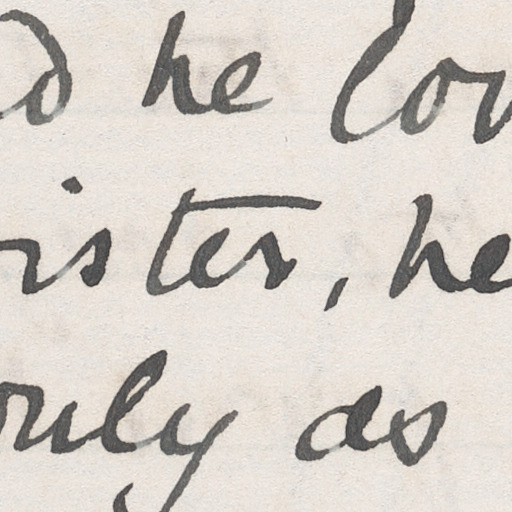 d he lov
ister, he
only as